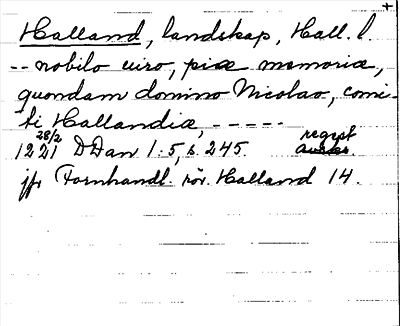 +
Halland, landskap, Hall. l.
-- nobilo uiro, piæ memoriæ,
quondam domino Nicolao, comi-
ti Hallandiæ, -----
28/2 regest
1221 DDan 1:5, s. 245.
jfr Fornhandl. rör. Halland 14.